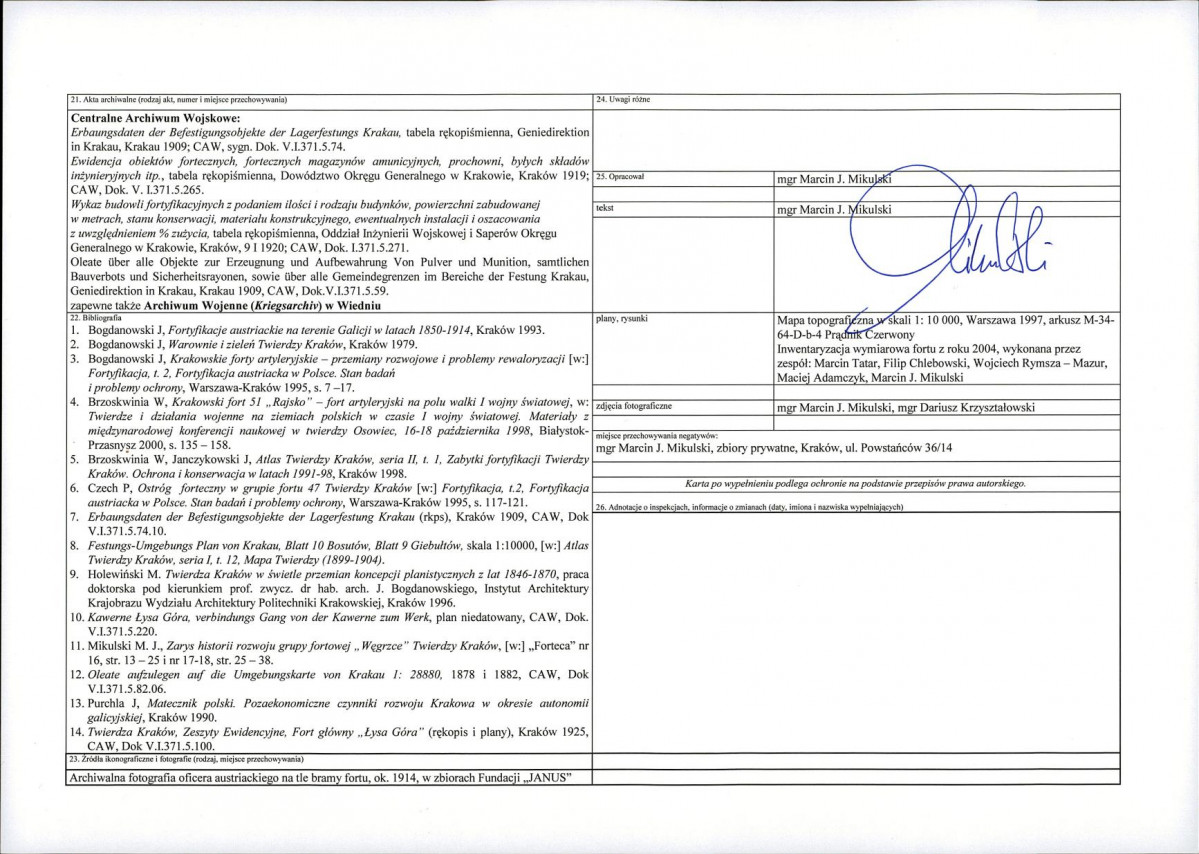 21. Akta archiwalne (rodzaj akt, numer i miejsce przechowywania)
Centralne Archiwum Wojskowe:
Erbaungsdaten der Befestigungsobjekte der Lagerfestungs Krakau, tabela rękopiśmienna, Geniedirektion
in Krakau, Krakau 1909; CAW, sygn. Dok. V.I.371.5.74.
Ewidencja obiektów fortecznych, fortecznych magazynów amunicyjnych, prochowni, byłych składów
inżynieryjnych itp., tabela rękopiśmienna, Dowództwo Okręgu Generalnego w Krakowie, Kraków 1919;
CAW, Dok. V. I.371.5.265.
Wykaz budowli fortyfikacyjnych z podaniem ilości i rodzaju budynków, powierzchni zabudowanej
w metrach, stanu konserwacji, materiału konstrukcyjnego, ewentualnych instalacji i oszacowania
z uwzględnieniem % zużycia, tabela rękopiśmienna, Oddział Inżynierii Wojskowej i Saperów Okręgu
Generalnego w Krakowie, Kraków, 9 I 1920; CAW, Dok. I.371.5.271.
Oleate über alle Objekte zur Erzeugnung und Aufbewahrung Von Pulver und Munition, samtlichen
Bauverbots und Sicherheitsrayonen, sowie über alle Gemeindegrenzen im Bereiche der Festung Krakau,
Geniedirektion in Krakau, Krakau 1909, CAW, Dok.V.I.371.5.59.
zapewne także Archiwum Wojenne (Kriegsarchiv) w Wiedniu
22. Bibliografia
1. Bogdanowski J, Fortyfikacje austriackie na terenie Galicji w latach 1850-1914, Kraków 1993.
2. Bogdanowski J, Warownie i zieleń Twierdzy Kraków, Kraków 1979.
3. Bogdanowski J, Krakowskie forty artyleryjskie – przemiany rozwojowe i problemy rewaloryzacji [w:]
Fortyfikacja, t. 2, Fortyfikacja austriacka w Polsce. Stan badań
i problemy ochrony, Warszawa-Kraków 1995, s. 7 –17.
4. Brzoskwinia W, Krakowski fort 51 „Rajsko” – fort artyleryjski na polu walki I wojny światowej, w:
Twierdze i działania wojenne na ziemiach polskich w czasie I wojny światowej. Materiały z
międzynarodowej konferencji naukowej w twierdzy Osowiec, 16-18 października 1998, Białystok-
Przasnysz 2000, s. 135 – 158.
5. Brzoskwinia W, Janczykowski J, Atlas Twierdzy Kraków, seria II, t. 1, Zabytki fortyfikacji Twierdzy
Kraków. Ochrona i konserwacja w latach 1991-98, Kraków 1998.
6. Czech P, Ostróg forteczny w grupie fortu 47 Twierdzy Kraków [w:] Fortyfikacja, t.2, Fortyfikacja
austriacka w Polsce. Stan badań i problemy ochrony, Warszawa-Kraków 1995, s. 117-121.
7. Erbaungsdaten der Befestigungsobjekte der Lagerfestung Krakau (rkps), Kraków 1909, CAW, Dok
V.I.371.5.74.10.
8. Festungs-Umgebungs Plan von Krakau, Blatt 10 Bosutów, Blatt 9 Giebułtów, skala 1:10000, [w:] Atlas
Twierdzy Kraków, seria I, t. 12, Mapa Twierdzy (1899-1904).
9. Holewiński M. Twierdza Kraków w świetle przemian koncepcji planistycznych z lat 1846-1870, praca
doktorska pod kierunkiem prof. zwycz. dr hab. arch. J. Bogdanowskiego, Instytut Architektury
Krajobrazu Wydziału Architektury Politechniki Krakowskiej, Kraków 1996.
10. Kawerne Łysa Góra, verbindungs Gang von der Kawerne zum Werk, plan niedatowany, CAW, Dok.
V.I.371.5.220.
11. Mikulski M. J., Zarys historii rozwoju grupy fortowej „Węgrzce” Twierdzy Kraków, [w:] „Forteca” nr
16, str. 13 – 25 i nr 17-18, str. 25 – 38.
12. Oleate aufzulegen auf die Umgebungskarte von Krakau 1: 28880, 1878 i 1882, CAW, Dok
V.I.371.5.82.06.
13. Purchla J, Matecznik polski. Pozaekonomiczne czynniki rozwoju Krakowa w okresie autonomii
galicyjskiej, Kraków 1990.
14. Twierdza Kraków, Zeszyty Ewidencyjne, Fort główny „Łysa Góra” (rękopis i plany), Kraków 1925,
CAW, Dok V.I.371.5.100.
23. Źródła ikonograficzne i fotografie (rodzaj, miejsce przechowywania)
Archiwalna fotografia oficera austriackiego na tle bramy fortu, ok. 1914, w zbiorach Fundacji „JANUS”
24. Uwagi różne
25. Opracował
mgr Marcin J. Mikulski
tekst
mgr Marcin J. Mikulski
Mikulski
plany, rysunki
Mapa topograficzna w skali 1: 10 000, Warszawa 1997, arkusz M-34-
64-D-b-4 Prądnik Czerwony
Inwentaryzacja wymiarowa fortu z roku 2004, wykonana przez
zespół: Marcin Tatar, Filip Chlebowski, Wojciech Rymsza – Mazur,
Maciej Adamczyk, Marcin J. Mikulski
zdjęcia fotograficzne
mgr Marcin J. Mikulski, mgr Dariusz Krzyształowski
miejsce przechowywania negatywów:
mgr Marcin J. Mikulski, zbiory prywatne, Kraków, ul. Powstańców 36/14
Karta po wypełnieniu podlega ochronie na podstawie przepisów prawa autorskiego.
26. Adnotacje o inspekcjach, informacje o zmianach (daty, imiona i nazwiska wypełniających)